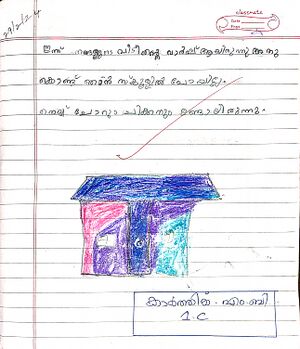 29/2/24
classmate
Date
Page
ഇന്ന് ഞങ്ങളുടെ വീടിന്റെ വാർപ്പ് ആയിരുന്നു അതു
കൊണ്ട് ഞാൻ സ്കൂളിൽ പോയില്ല.
നെയ്ച്ചോറും ചിക്കനും ഉണ്ടായിരുന്നു.
കാർത്തിക് എം.ബി
1.C